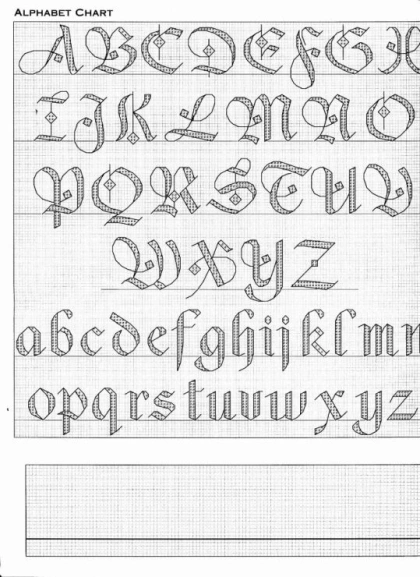 ALPHABET CHART
A B C D E F G H
I J K L M N O
P Q R S T U V
W X Y Z
a b c d e f g h i j k l m n
o p q r s t u v w x y z